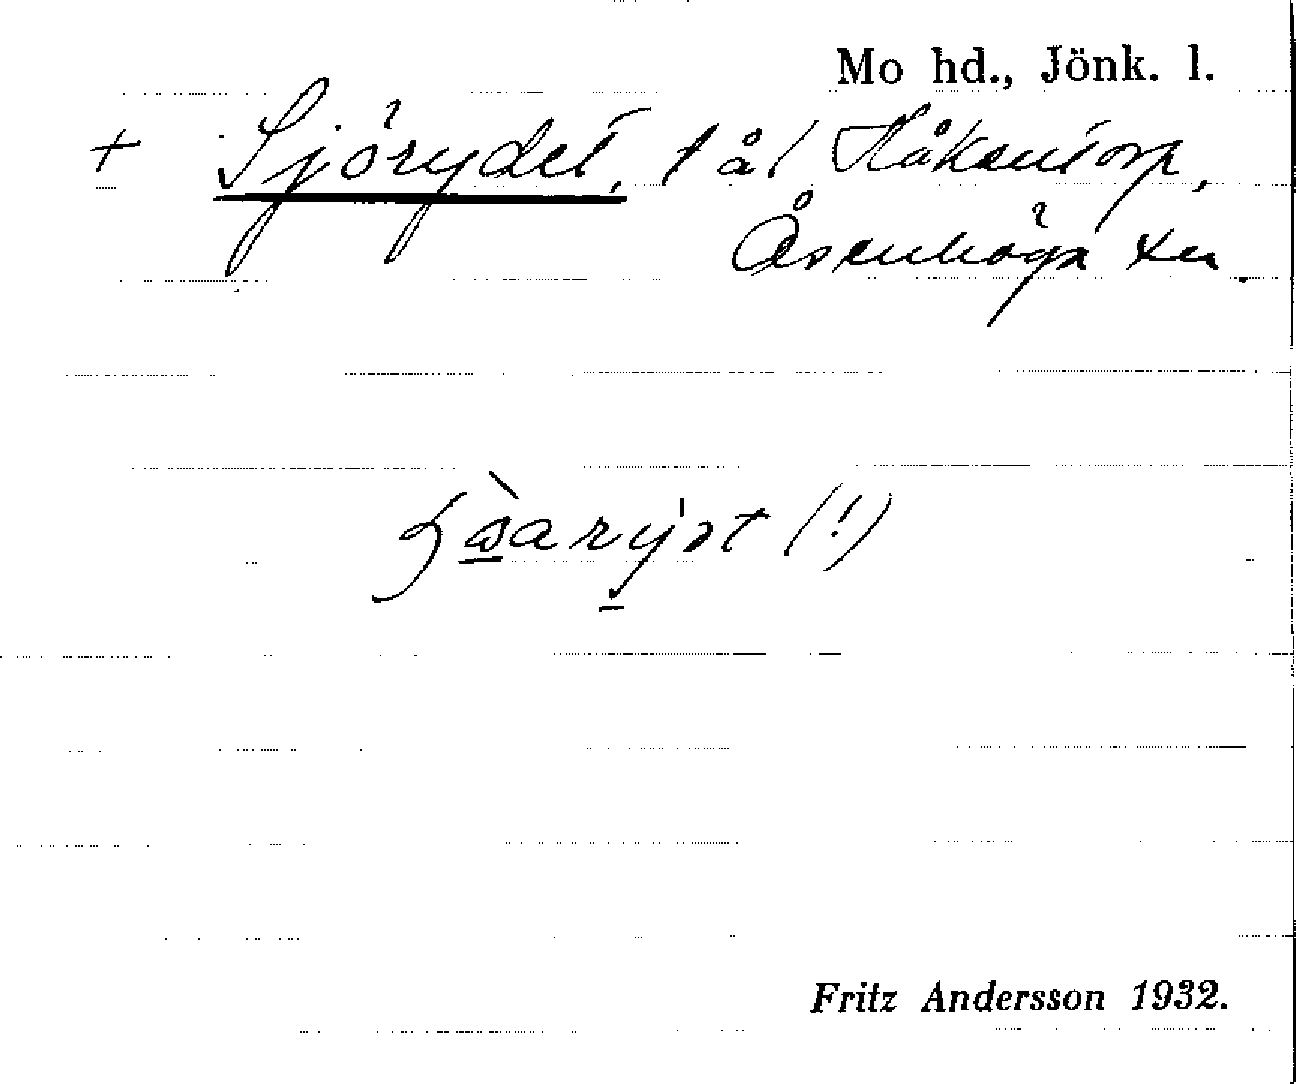 Mo hd., Jönk. l.
+ Sjörydet, t åt Håkentorp,
Åsenhöga sn.
(!)
Fritz Andersson 1932.